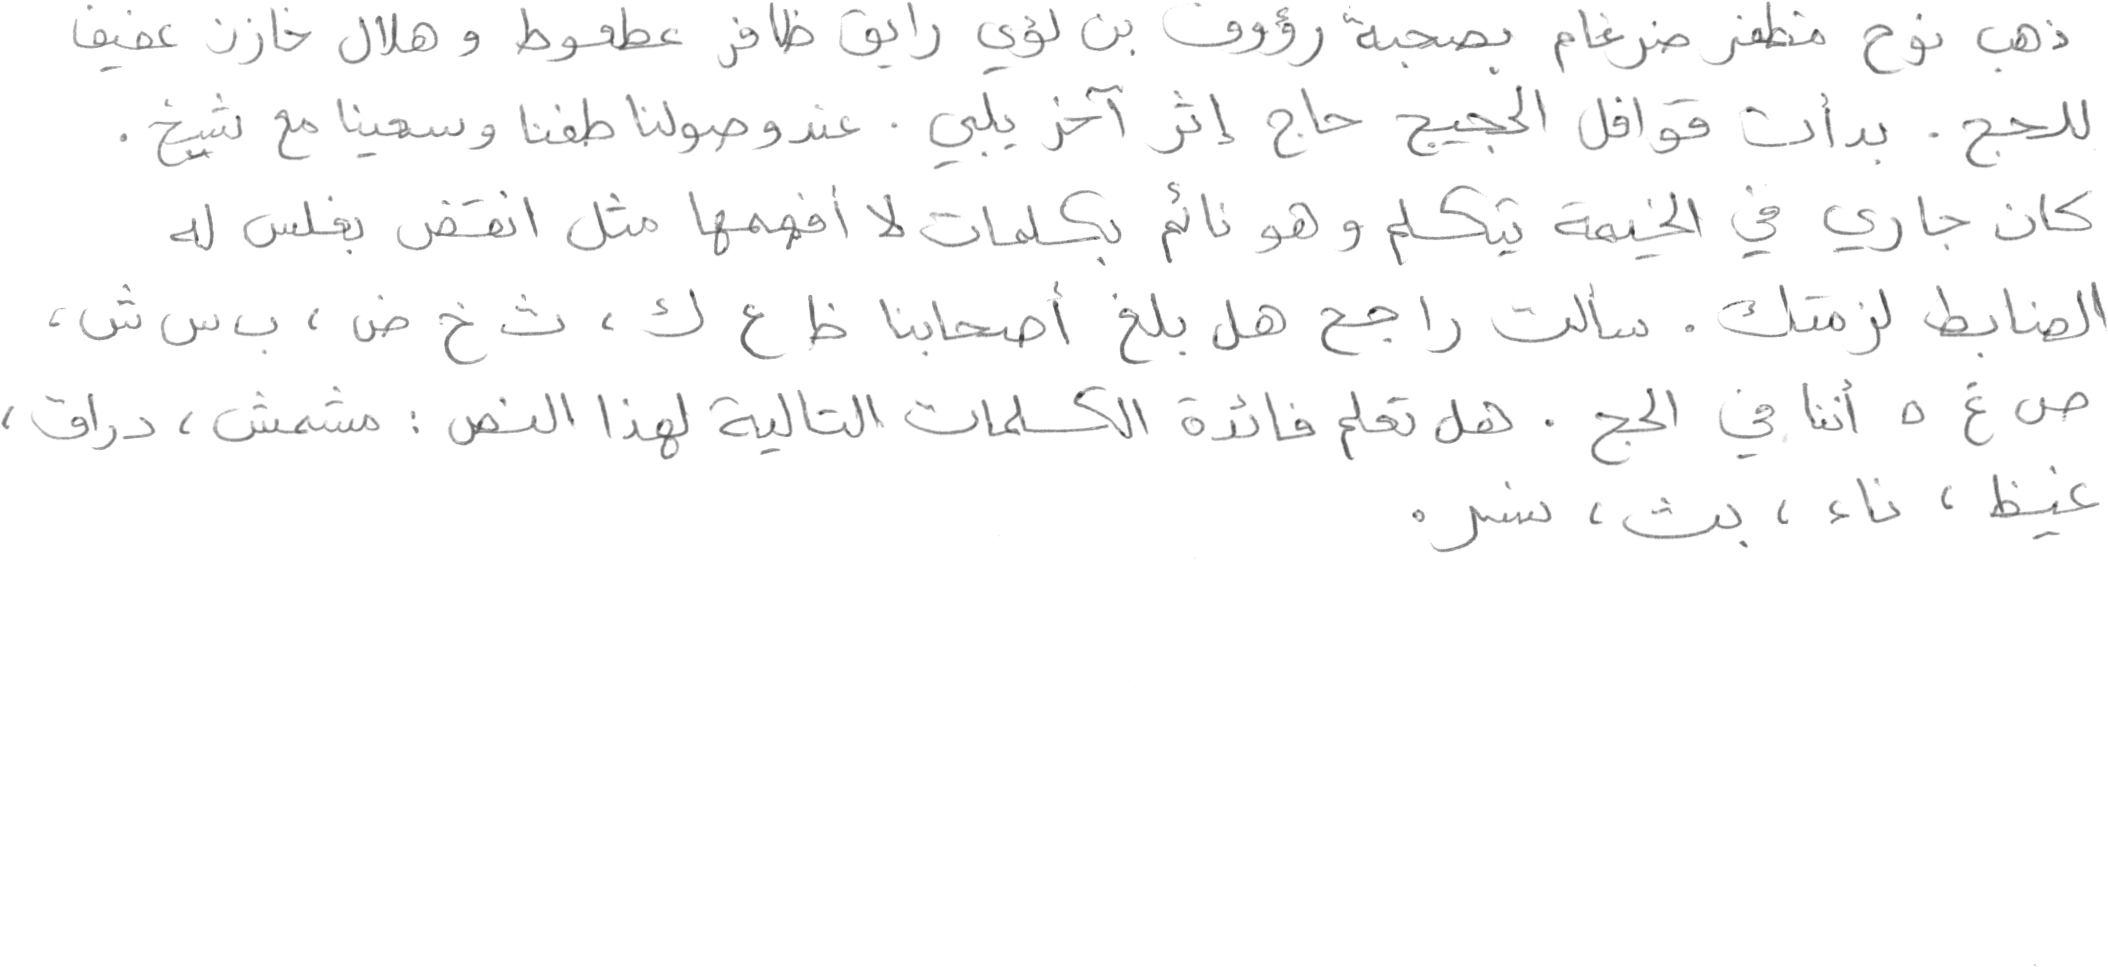 ذهب نوح مظفر ضرغام بصحبة رؤوف بن لؤي رايق ظافر عطعوط و هلال خازن عفيف
للحج . بدأت قوافل الحجيج حاج إثر آخر يلبي . عند وصولنا طفنا و سعينا مع شيخ .
كان جاري في الخيمة يتكلم و هو نائم بكلمات لا أفهمها مثل انقض بغلس له
الضابط لزمتك . سألت راجح هل بلغ أصحابنا ظ ع ك ، ث خ ض ، ب س ش ،
ص غ ه أننا في الحج . هل تعلم فائدة الكلمات التالية لهذا النص : مشمش ، دراق ،
غيظ ، ناء ، بث ، نسر .